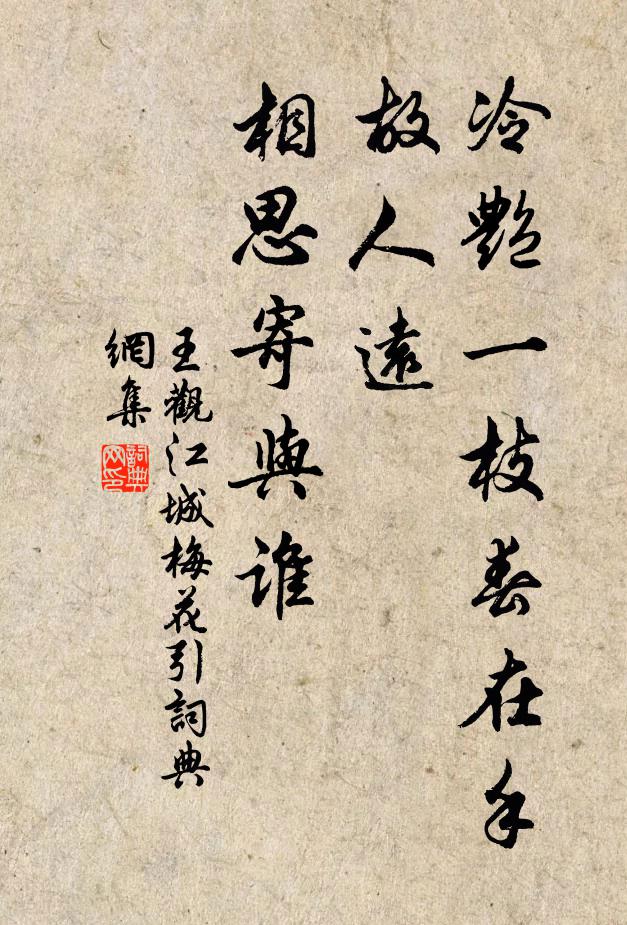 冷艷一枝春在手
故人遠
相思寄與誰
王觀江城梅花引詞典
網集
詞典網印